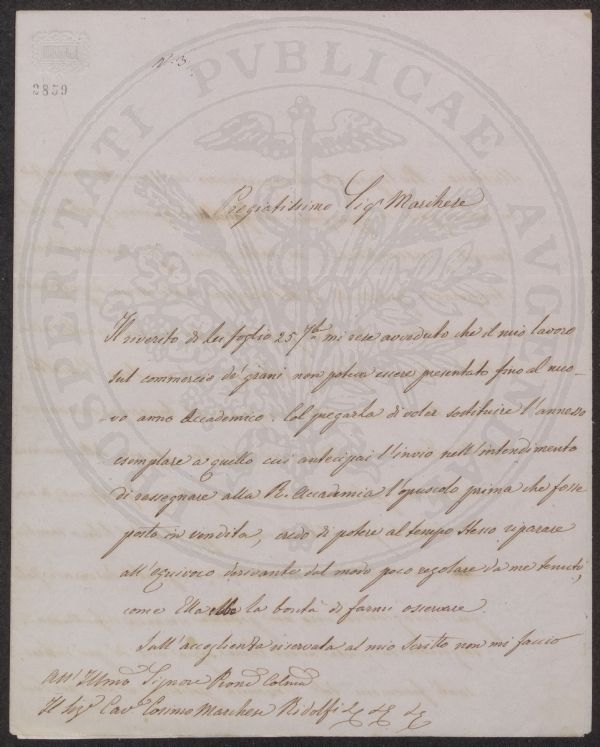 N. 3
2859
PROSPERITATI PVBLICAE AVGENDAE
Pregiatissimo Sigr Marchese
Il riverito di lei foglio 25 7bre mi rese avveduto che il mio lavoro
sul commercio de' grani non poteva essere presentato fino al nuo-
vo anno Accademico. Col pregarla di voler sostituire l'annesso
esemplare a quello cui antecipai l'invio nell'intendimento
di rassegnare alla R. Accademia l'opuscolo prima che fosse
posto in vendita, credo di potere al tempo stesso riparare
all'equivoco derivante dal modo poco regolare da me tenuto,
come Ella ebbe la bontà di farmi osservare.
Sull'accoglienza riservata al mio Scritto non mi faccio
All' Illmo Signore
Il Sigr Cav Cosimo Marchese Ridolfi &c &c &c